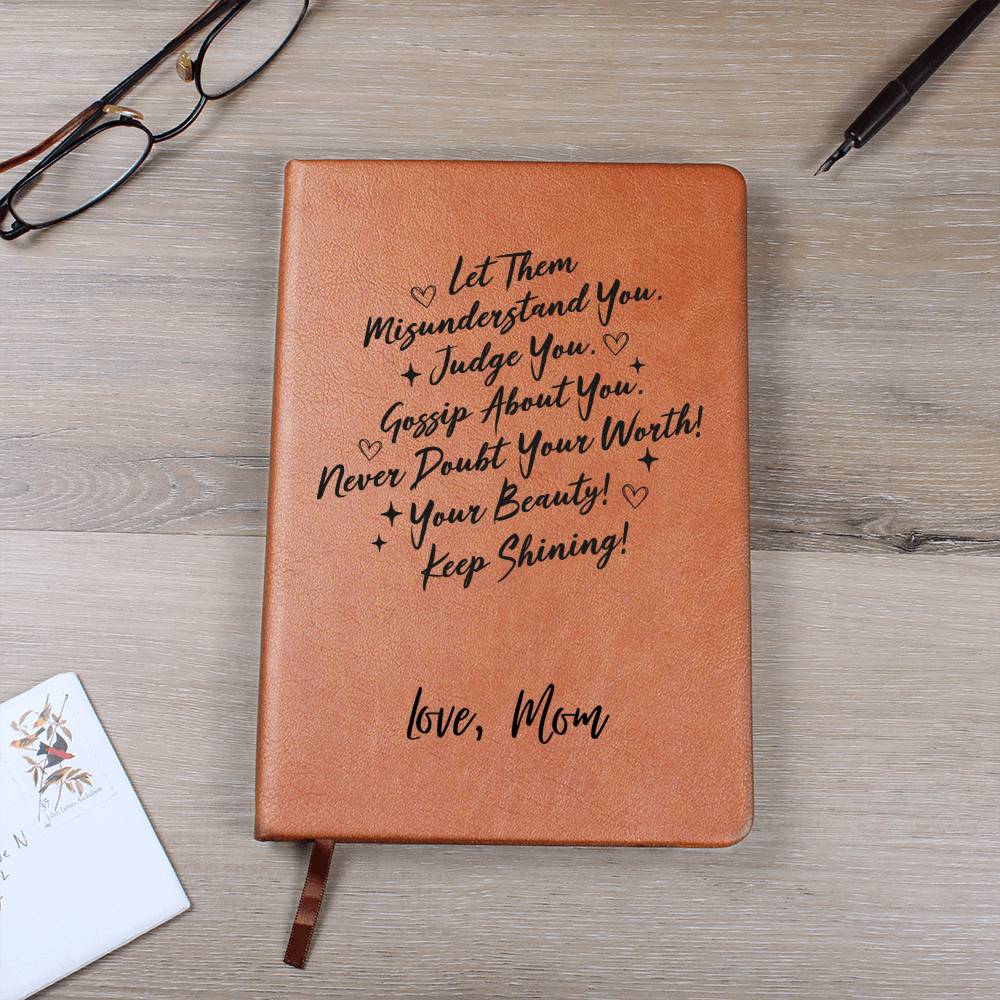 Let Them
Misunderstand You.
Judge You.
Gossip About You.
Never Doubt Your Worth!
Your Beauty!
Keep Shining!
Love, Mom
37
John James Audubon
N
L